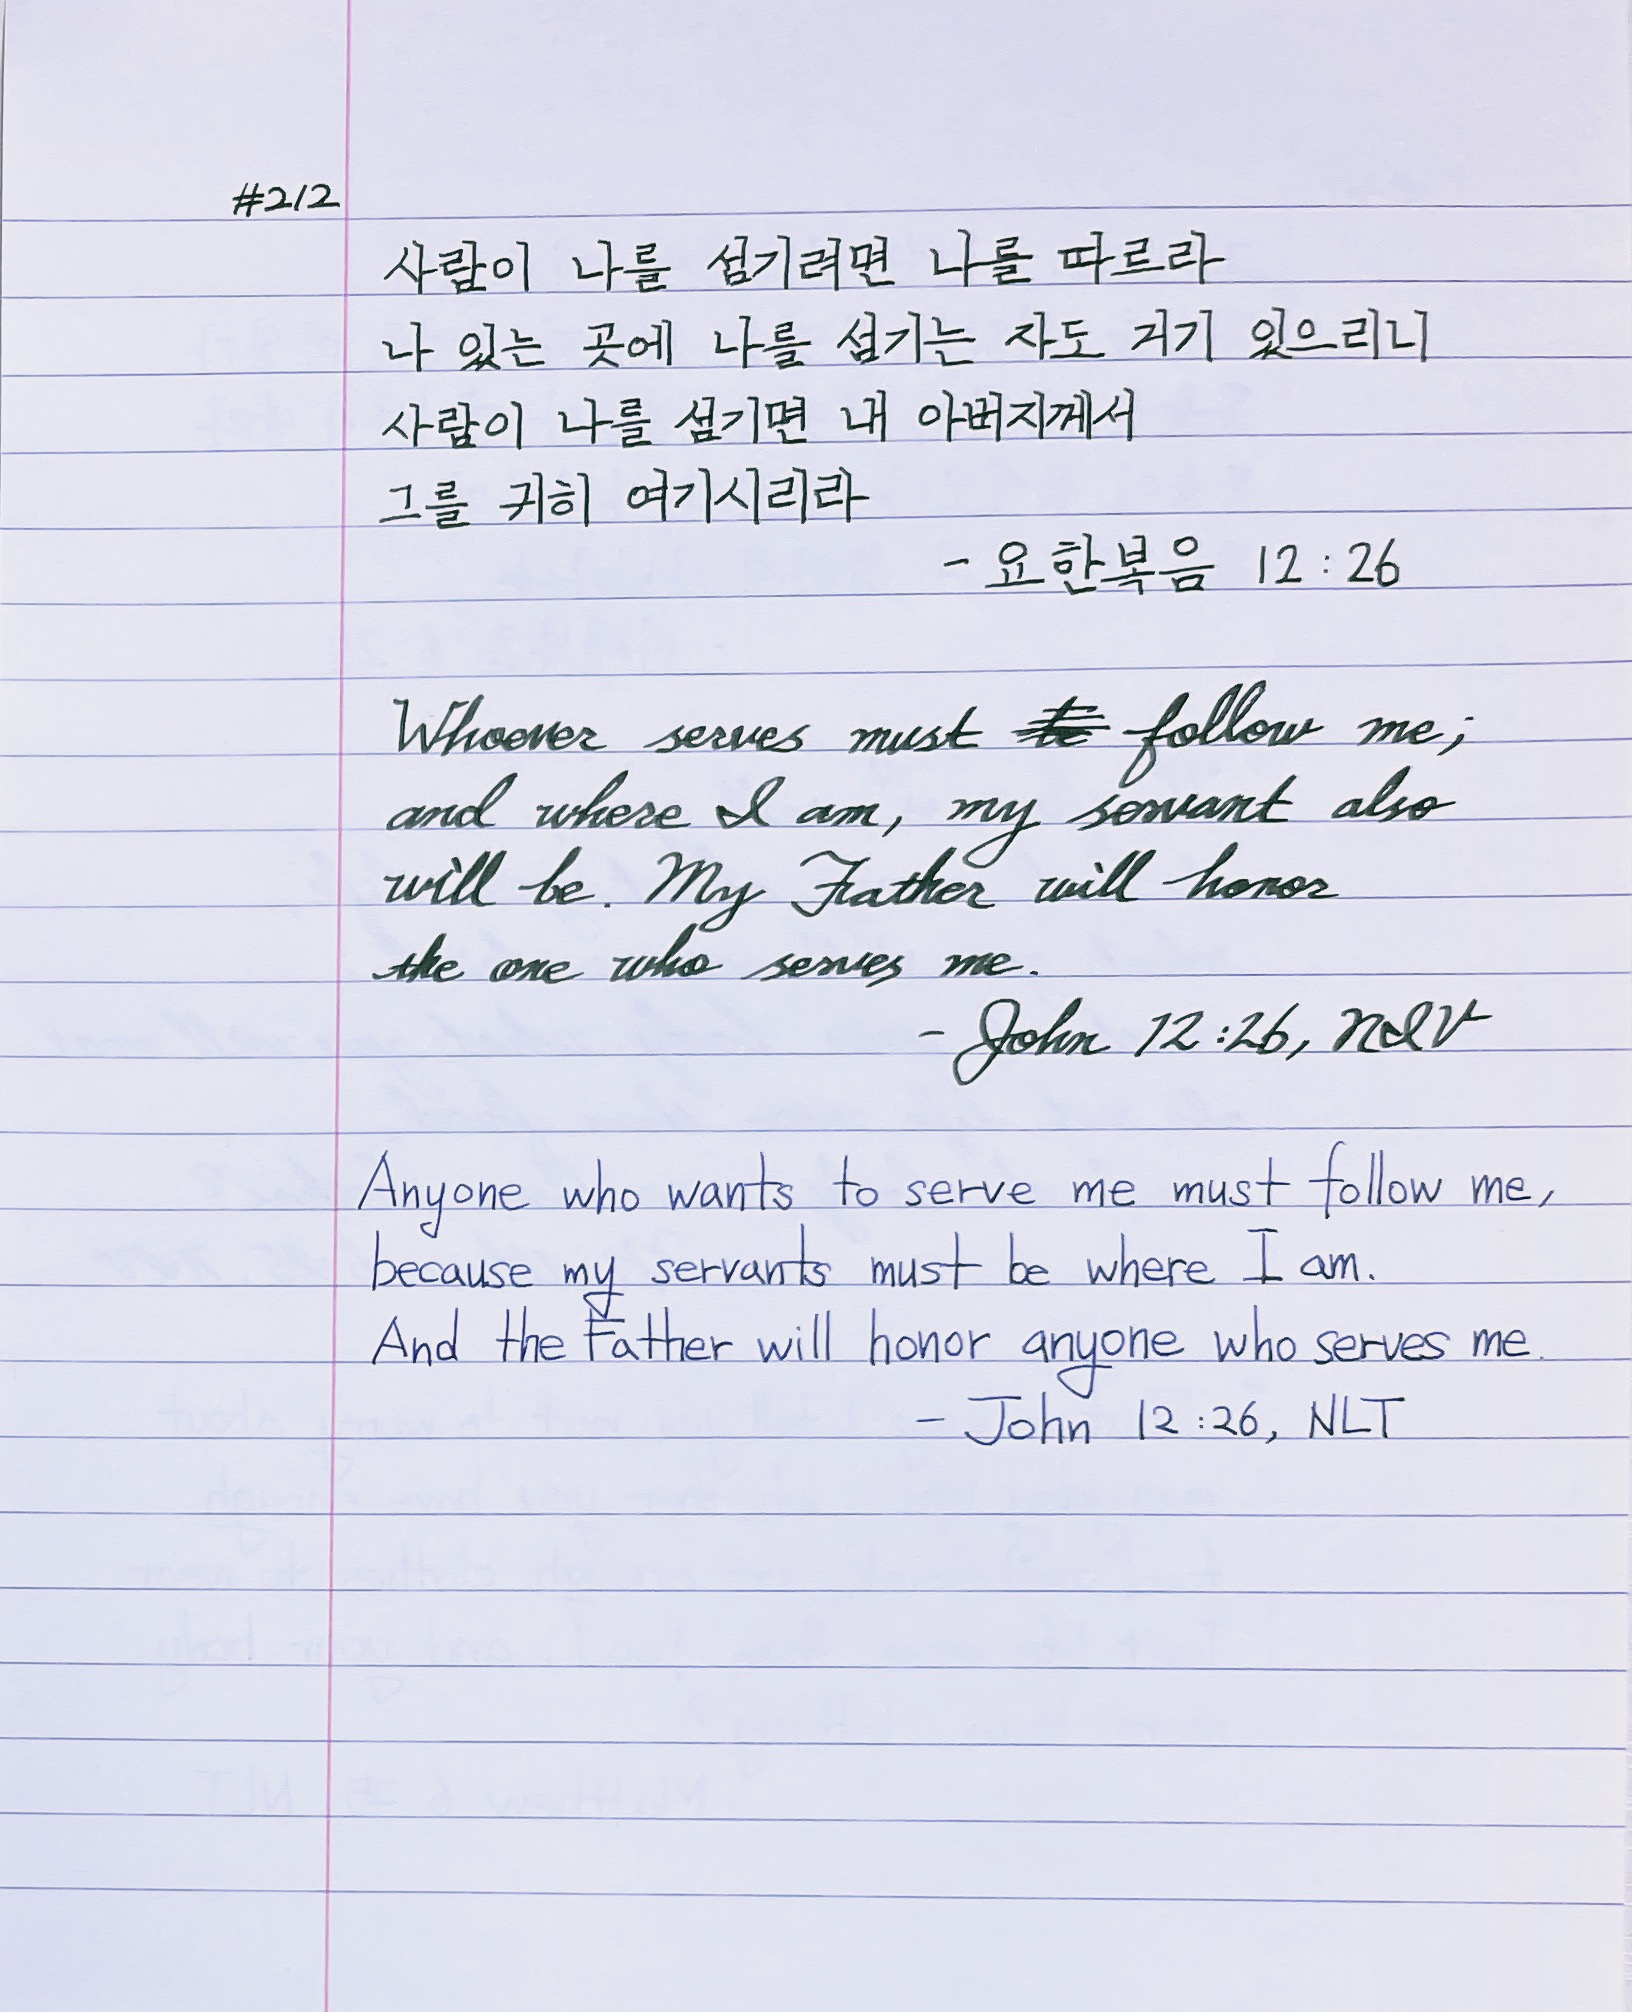 #212
사람이 나를 섬기려면 나를 따르라
나 있는 곳에 나를 섬기는 자도 거기 있으리니
사람이 나를 섬기면 내 아버지께서
그를 귀히 여기시리라
- 요한복음 12:26
Whoever serves must follow me;
and where I am, my servant also
will be. My Father will honor
the one who serves me.
- John 12:26, NIV
Anyone who wants to serve me must follow me,
because my servants must be where I am.
And the Father will honor anyone who serves me.
- John 12:26, NLT